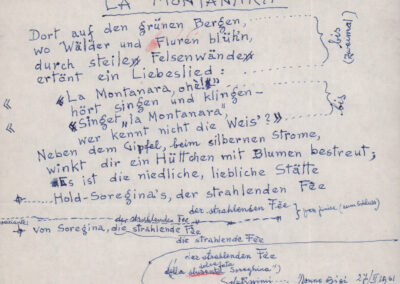 LA MONTANARA
Dort auf den grünen Bergen,
wo Wälder und Fluren blüh'n,
durch steilen Felsenwänden
ertönt ein Liebeslied:
bis
(zweimal)
"La Montanara, ohè!"
hört singen und klingen-
"Singet „la Montanara",
wer kennt nicht die Weis'?"
bis
Neben dem Gipfel, beim silbernen Strome,
winkt dir ein Hüttchen mit Blumen bestreut;
Es ist die niedliche, liebliche Stätte
Hold-Soregina's, der strahlenden Fee
der strahlenden Fee
der strahlenden Fee"
von Soregina, die strahlende Fee
die strahlende Fee
der strahlenden Fee
Soreghina")
Nonno Gigi